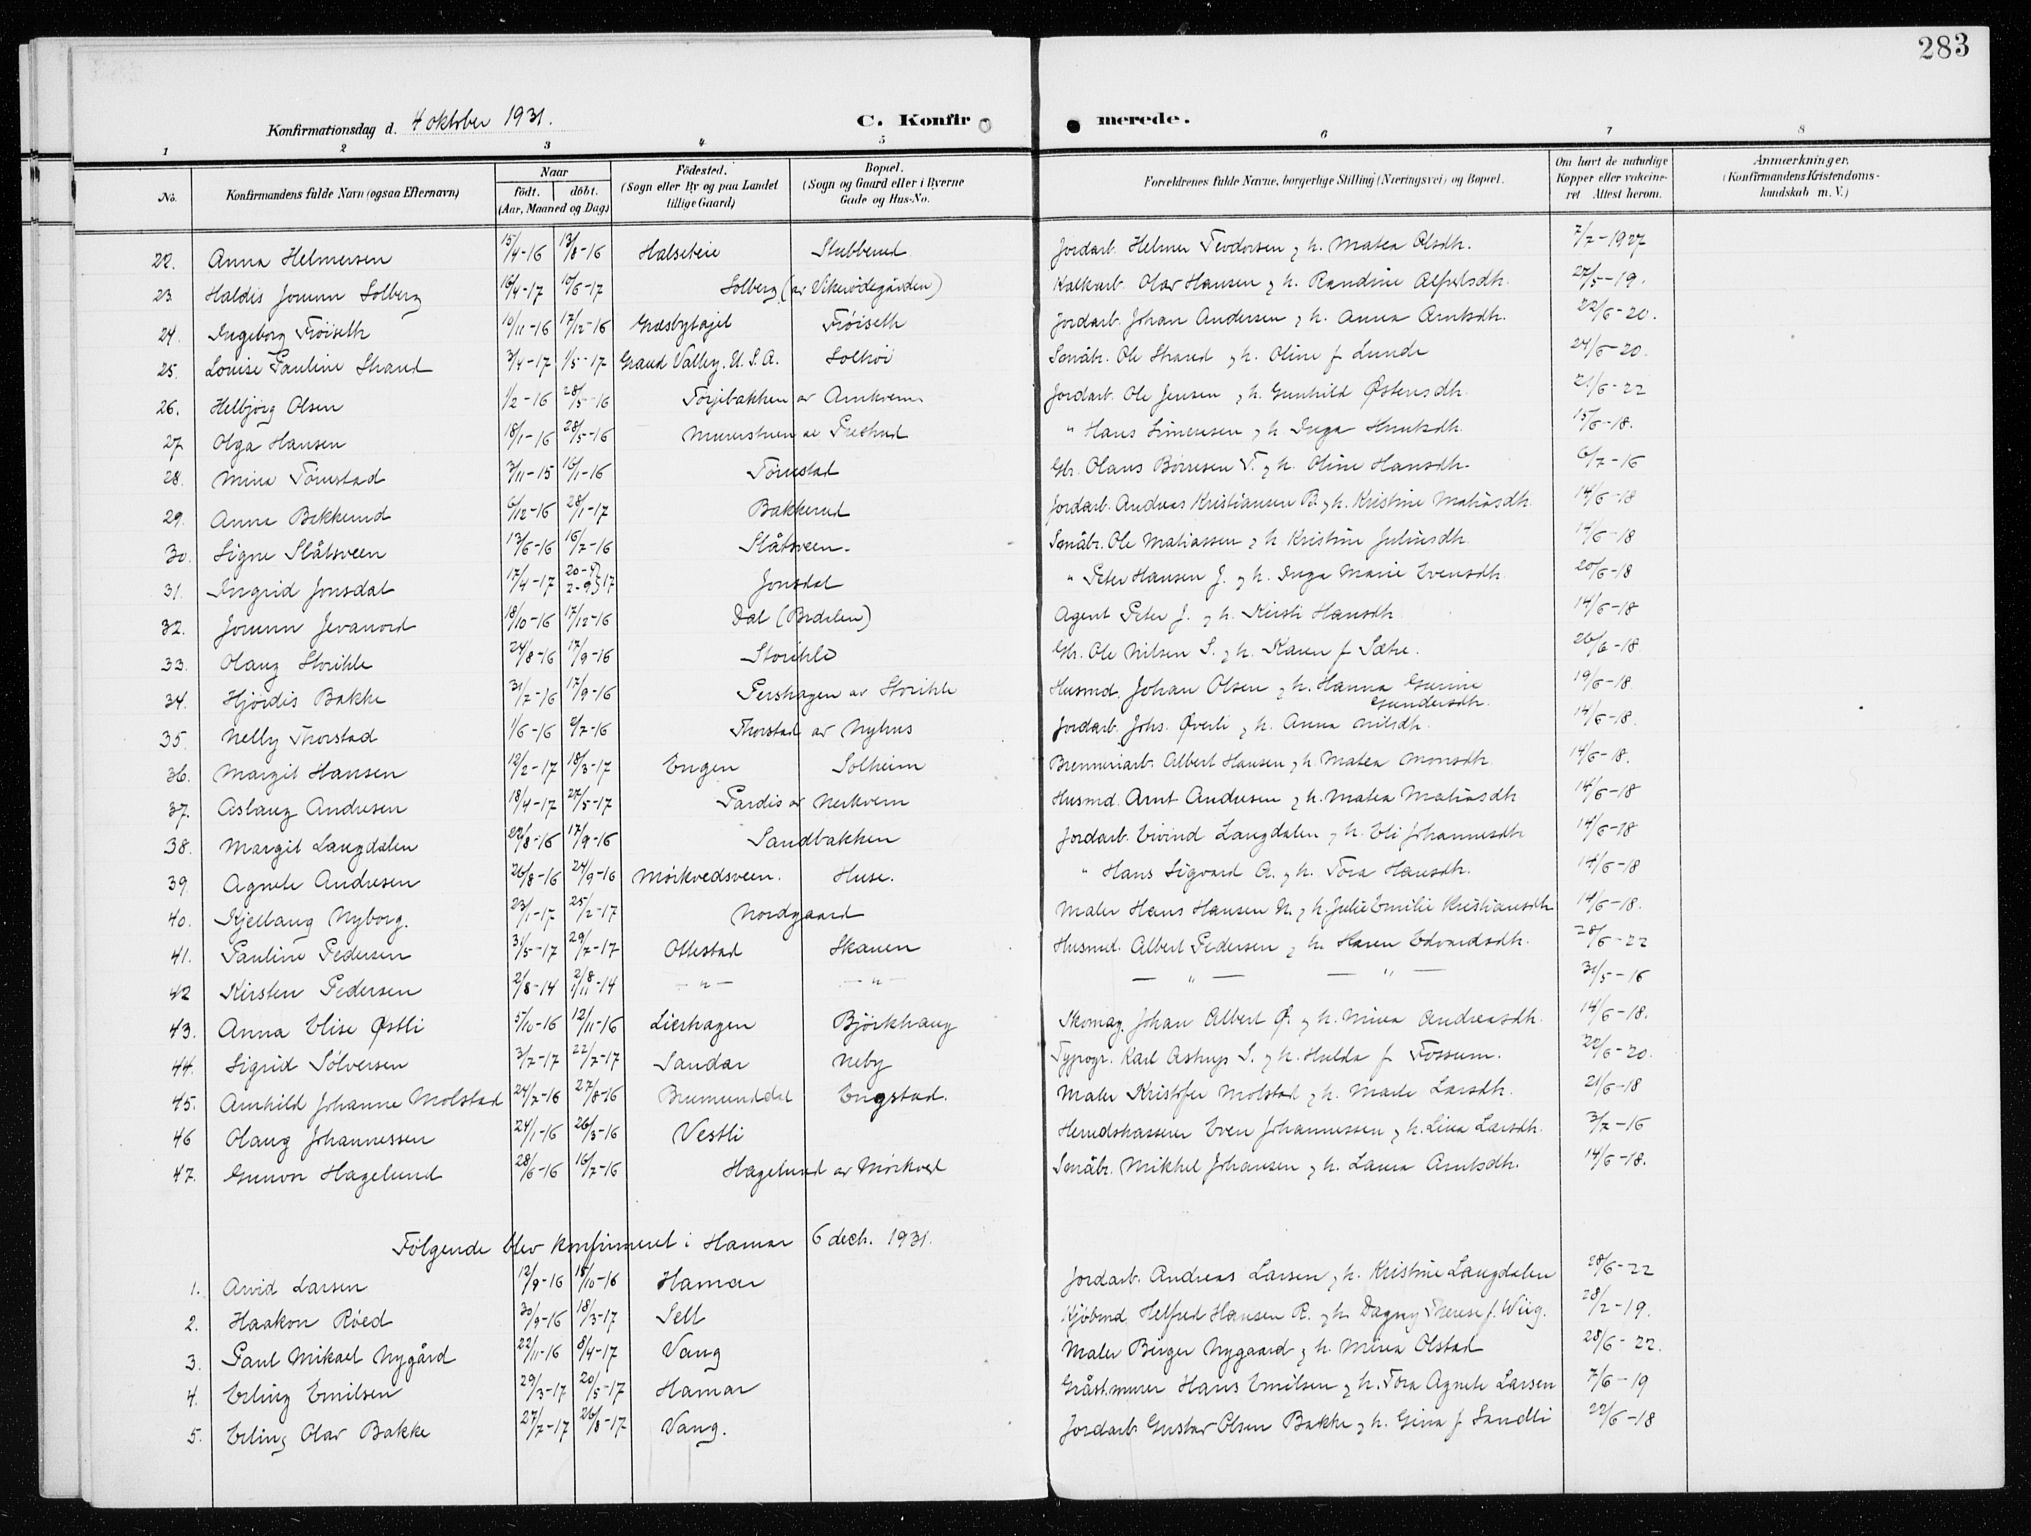 283
Konfirmationsdag d. 4 oktober 1931.
C. Konfirmerede.
1 2 3 4 5 6 7 8
No.
Konfirmandens fulde Navn (ogsaa Efternavn)
Naar
födt. döbt.
(Aar, Maaned og Dag)
Födested.
(Sogn eller By og paa Landet
tillige Gaard)
Bopæl.
(Sogn og Gaard eller i Byerne
Gade og Hus-No.
Forældrenes fulde Navne, borgerlige Stilling (Næringsvei) og Bopæl.
Om havt de naturlige
Kopper eller vakcine-
ret Attest herom.
Anmærkninger.
(Konfirmandens Kristendoms-
kundskab m. V.)
22. Anna Helmersen 15/4-16 13/8-16 Halseteie Stubberud Jordarb. Helmer Teodorsen og h. Matea Olsdh. 7/7-1927
23. Haldis Jorunn Solberg 16/4-17 10/6-17 Solberg (av Vikerödegården) Kalkarb. Olav Hansen og h. Randine Alfredsdh. 27/5-19.
24. Ingeborg Frøiseth 10/11-16 17/12-16 Frøiseth Jordarb. Johan Andersen og h. Anna Arntsdh. 22/6-20.
25. Louise Pauline Strand 3/4-17 1/5-17 Grand Valley, U.S.A. Solhöi Småbr. Ole Strand og h. Oline f. Lunde 24/6-20.
26. Helbjörg Olsen 1/2-16 28/5-16 Torjebakken av Arnkvern Jordarb. Ole Jensen og h. Gunhild Østensdh. 21/6-22
27 Olga Hansen 18/1-16 28/5-16 Murerstuen av " Hans Simensen og h. Inga Knutsdh. 15/6-18.
28. Mina Tömstad 3/11-15 16/1-16 Tömstad Gbr. Olaus Børresen T. og h. Oline Hansdh. 6/7-16
29. Anna Bakkerud 6/12-16 28/1-17 Bakkerud Jordarb. Andreas Kristiansen B. og h. Kristine Matiasdh. 14/6-18
30. Signe Slåtsveen 13/6-16 16/7-16 Slåtsveen. Småbr. Ole Matiassen og h. Kristine Juliusdh. 14/6-18
31. Ingrid Jonsdal 17/4-17 20-4 2-9 17 Jonsdal " Peter Hansen J. og h. Inga Marie Evensdh. 20/6-18
32. Jorunn Jevanord 18/10-16 17/12-16 Dal (Brdalen) Agent Peter J. og h. Kirsti Hansdh. 14/6-18
33. Olaug Storihle 24/8-16 17/9-16 Storihle Gbr. Ole Nilsen S. og h. Karen f Sætre. 26/6-18.
34. Hjördis Bakke 31/7-16 17/9-16 Pershagen av Storihle Husmd. Johan Olsen og h. Hanna Gurine Gundersdh. 19/6-18
35. Nelly Thorstad 1/6-16 2/7-16 Thorstad av Nyhus Jordarb. Johs. Øverli og h. Anna Nilsdh. 14/6-18.
36. Margit Hansen 12/2-17 18/3-17 Engen Solheim Brenneriarb. Albert Hansen og h. Matea Monsdh. 14/6-18.
37. Aslaug Andresen 18/4-17 27/5-17 Pardis av Nerkvern Husmd. Arnt Andresen og h. Matea Matiasdh 14/6-18
38. Margit Langdalen 22/8-16 17/9-16 Sandbakken Jordarb. Eivind Langdalen og h. Eli Johannesdh 14/6-18
39. Agnete Andresen 26/8-16 24/9-16 Mörkvedsveen. Huse. " Hans Sigvard A. og h. Tora Hansdh. 14/6-18
40. Kjellaug Nyborg. 23/1-17 25/2-17 Nordgaard Maler Hans Hansen N. og h. Julie Emilie Kristiansdh. 14/6-18.
41. Pauline Pedersen 31/5-17 29/7-17 Ottestad Skauen Husmd. Albert Pedersen og h. Karen Edvardsdh. 28/6-22
42 Kirsten Pedersen 2/8-14 2/8 1/11-14 - " - - " - - " - - " - 31/5-16
43. Anna Elise Østli 5/10-16 12/11-16 Lierhagen Björkhaug Skomag. Johan Albert Ø. og h. Mina Andreasdh. 14/6-18.
44. Sigrid Sölversen 3/7-17 22/7-17 Sandar Neby Typogr. Karl Astrup S. og h. Hulda f. Fossum. 22/6-20.
45. Arnhild Johanne Molstad 24/7-16 27/8-16 Brumunddal Engstad. Maler Kristofer Molstad og h. Marte Larsdh. 21/6-18
46 Olaug Johannessen 24/1-16 26/3-16 Vestli Herredskasserer Even Johannessen og h. Lina Larsdh. 3/7-16
47. Gunvor Hagelund 28/6-16 16/7-16 Hagelund av Mörkved Småbr. Mikkel Johansen og h. Laura Arntsdh. 14/6-18.
Følgende blev konfirmeret i Hamar 6 decb. 1931.
1. Arvid Larsen 12/9-16 15/10-16 Hamar Jordarb. Andreas Larsen og h. Kristine Langdalen 28/6-22
2. Haakon Röed 30/9-16 18/3-17 Sell Kjöbmd Helfred Hansen R. og h. Dagny Therese f. Wiig. 28/2-19.
3. Paul Mikael Nygård 22/11-16 8/4-17 Vang Maler Birger Nygaard og h. Mina Olstad 28/6-22.
4. Erling Emilsen 29/3-17 20/5-17 Hamar Gråst.murer Hans Emilsen og h. Tora Agnete Larsen 7/6-19
5. Erling Olav Bakke 27/7-17 26/8-17 Vang. Jordarb. Gustav Olsen Bakke og h. Gina f Sandli 22/6-18